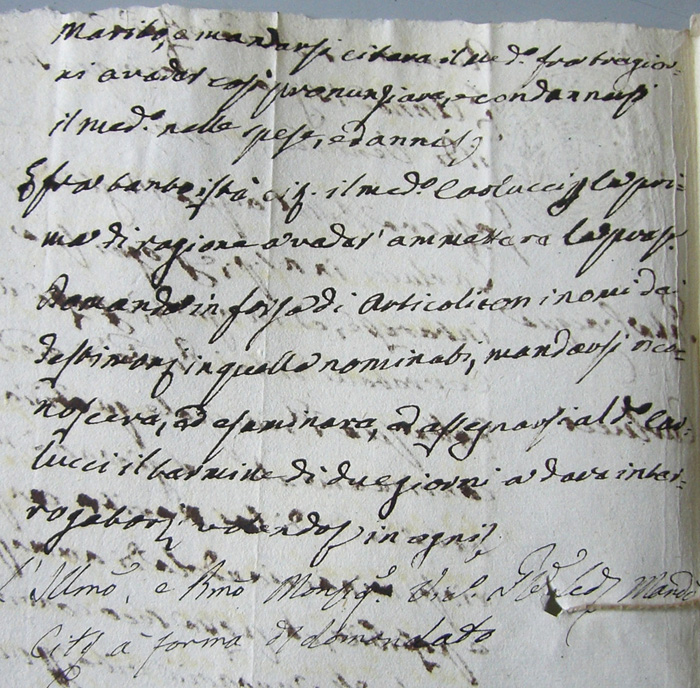 Marito, e mandarsi citare il med.º fra tre gior-
ni a vader così pronunziare, e condannarsi
il med.º nelle spese, e danni
E fra tanto istà cit. il med.º Carlucci p la pri-
ma di ragione a vader' ammettere le pres.
Domande in forza di Articoli con i nomi dei
Testimonj in quelle nominati, mandarsi rico-
noscere, ed esaminare, ed assegnarsi al d.º Car-
lucci il termine di due giorni a dare inter-
rogatorj volendo in ogni
L'Illmo, e Rmo Monsig.r Mandò
Citj à forma di domandato